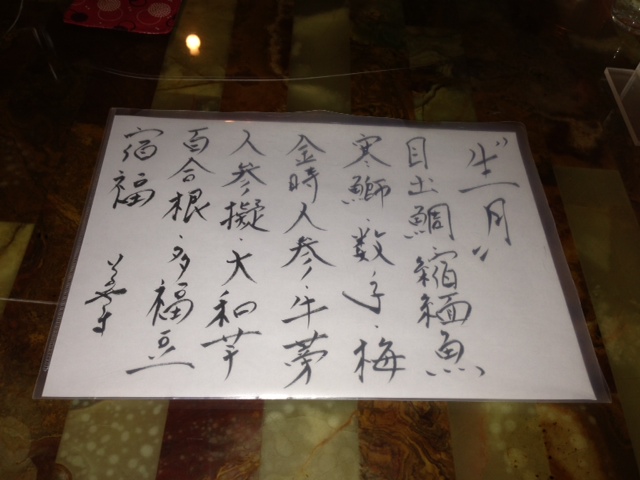 〝生月〟
目出鯛 縮緬魚
寒鰤・数ノ子・梅
金時人参・牛蒡
人参擬・大和芋
百合根・多福豆
宿福